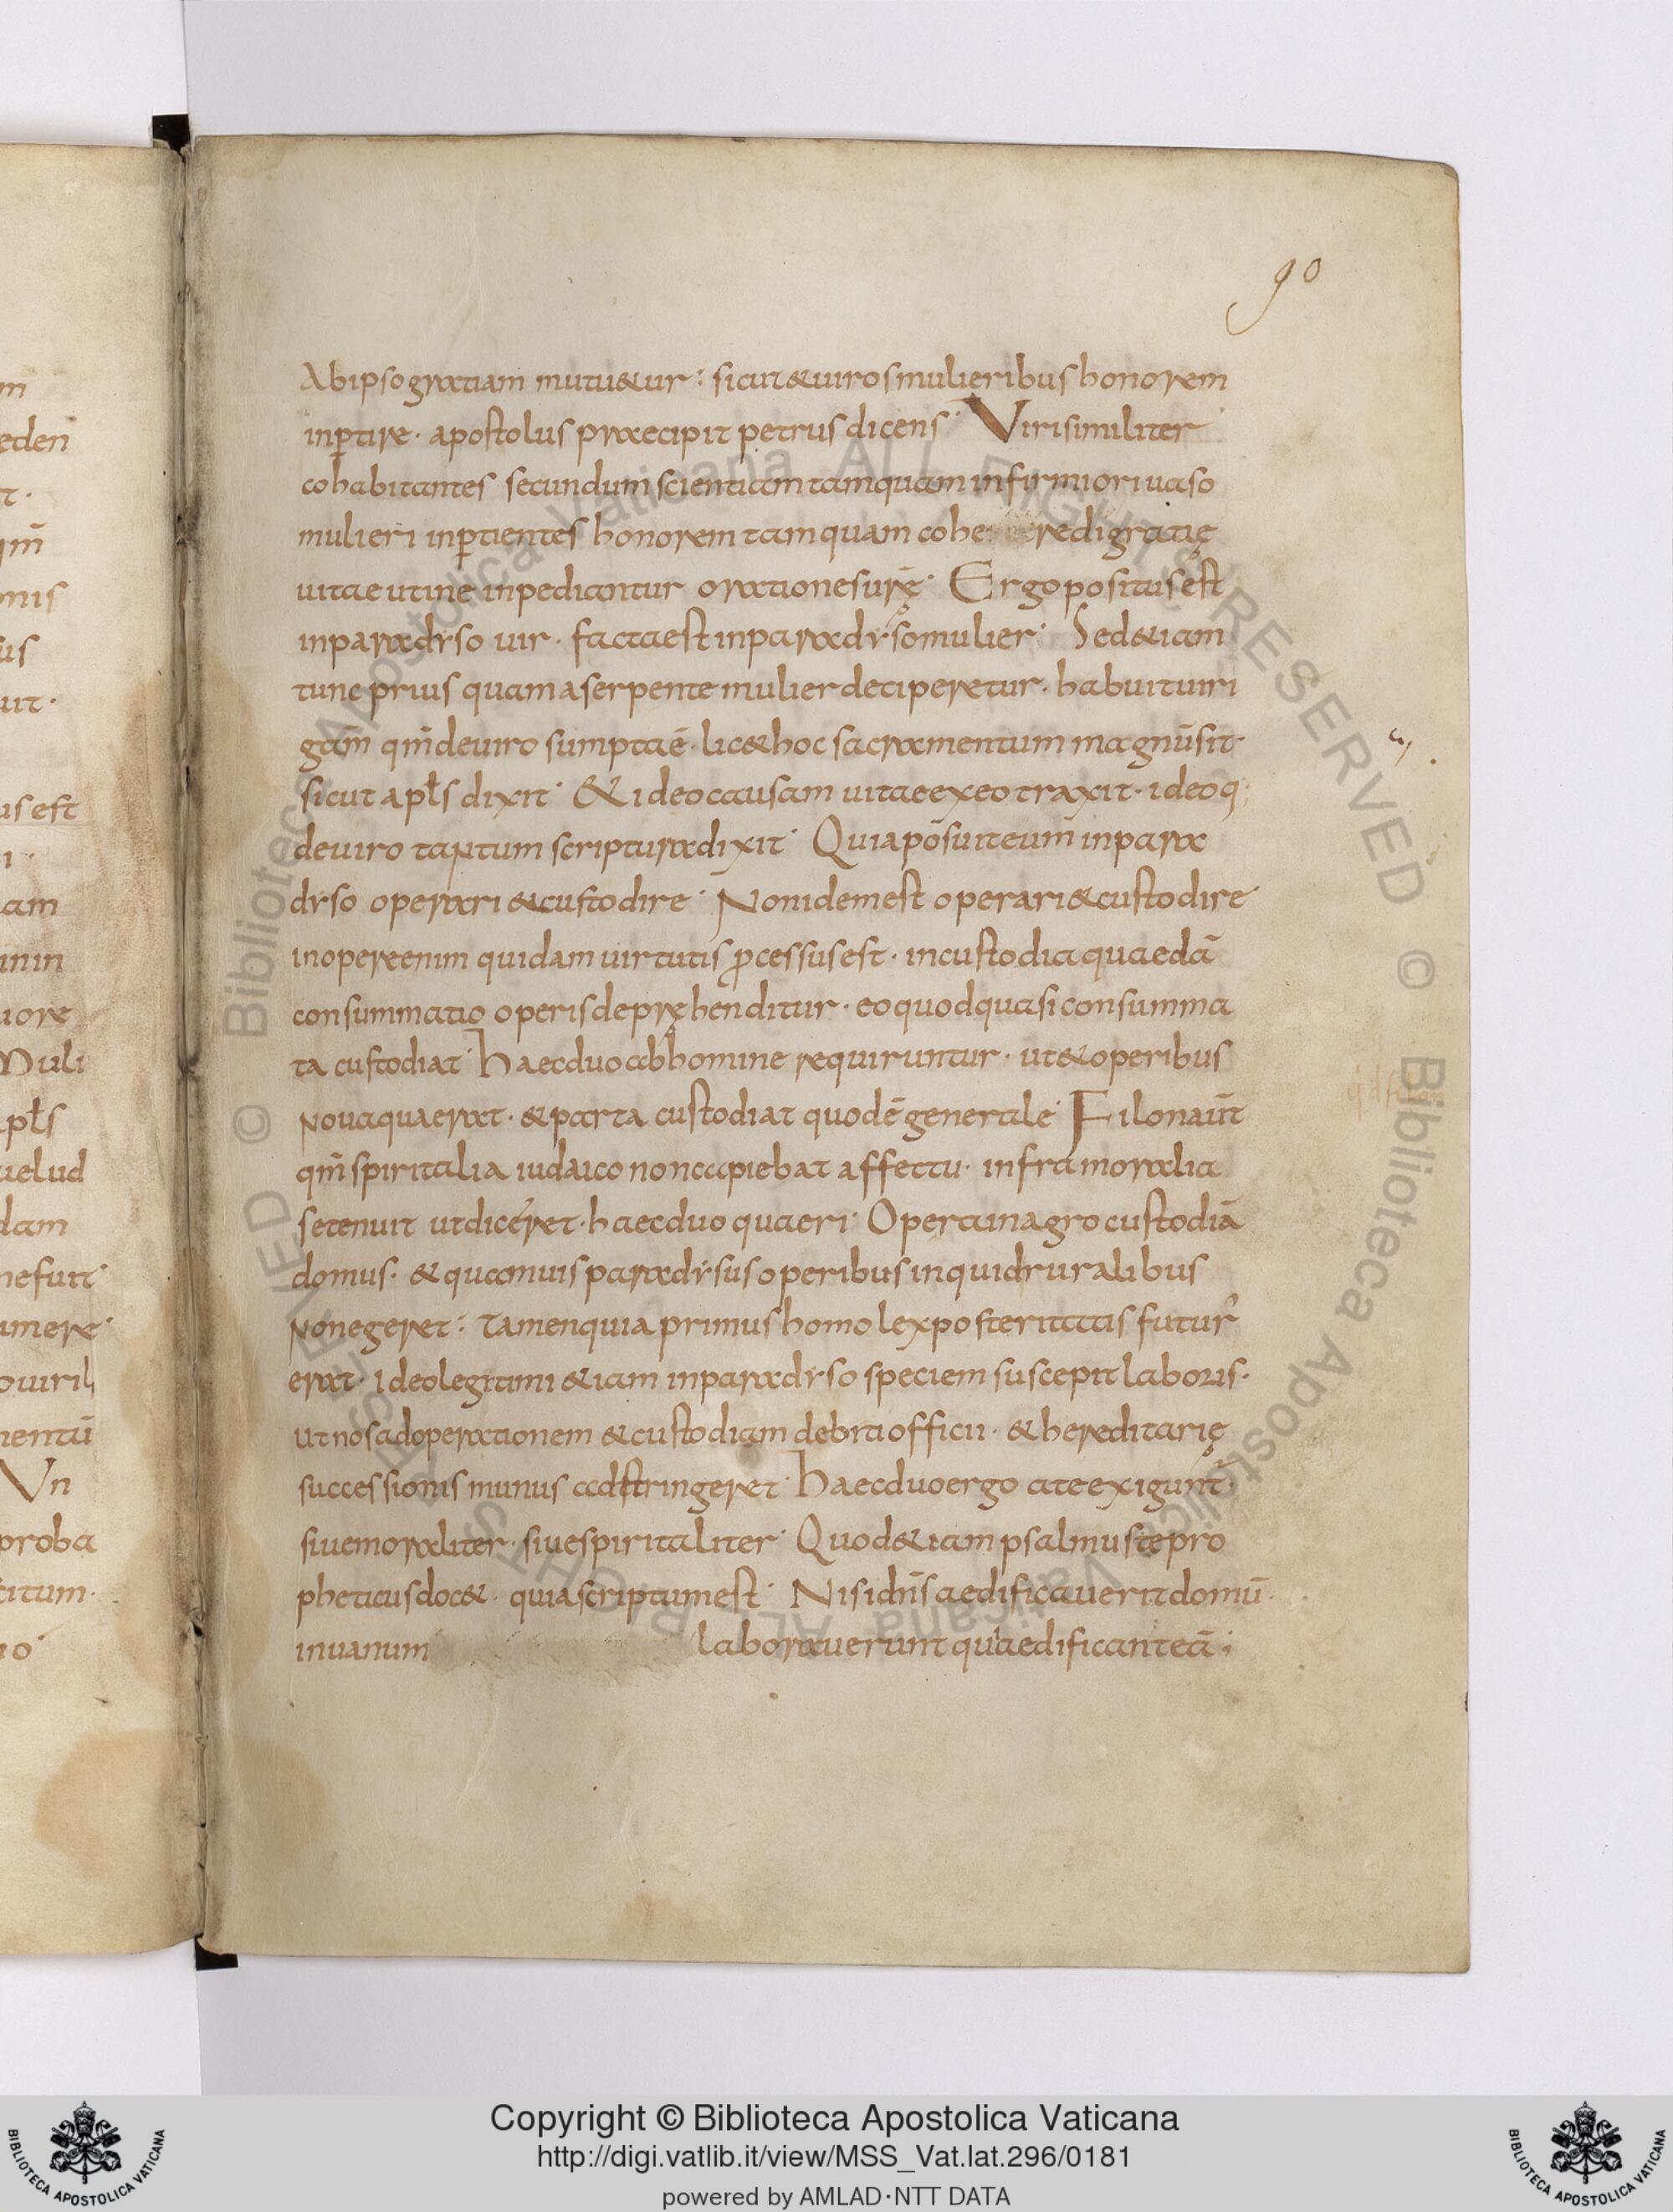 90
Abipso gratiam mutu&ur: sicut & uiros mulieribus honorem
inꝑtire· apostolus praecipit petrus dicens· Viri similiter
cohabitantes secundum scientiam tamquam infirmiori uaso
mulieri inꝑtientes honorem tamquam cohe redi gratię
uitae ut ne inpediantur orationes urę̄· Ergo positus est
in paradyso uir· facta est in paradyso mulier· Sed &iam
tunc prius quam a serpente mulier deciperetur· habuit uiri
gām qm̄ de uiro sumpta ē· lic& hoc sacramentum magnū sit·
sicut apƚs dixit· & ideo causam uitae ex eo traxit· ideoq;
de uiro tantum scriptura dixit· Quia posuit eum in para
dyso operari & custodire· Non idem est operari & custodire·
in opere enim quidam uirtutis ꝓcessus est· in custodia quaedā
consummatio operis deprehenditur· eo quod quasi consumma
ta custodiat· haec duo ab homine requiruntur· ut & operibus
noua quaerat· & parta custodiat quod ē generale· Filon aūt
qm̄ spiritalia iudaico non capiebat affectu· infra moralia
se tenuit ut diceret· haec duo quaeri· Opera in agro custodiā
domus· & quamuis paradysus operibus inquid ruralibus
non egeret: tamen quia primus homo lex posteritatis futur᾽
erat· ideo legitimi &iam in paradyso speciem suscepit laboris·
ut nos ad operationem & custodiam debiti officii· & hereditarię
successionis munus adstringeret· haec duo ergo a te exigunt᾽·
siue moraliter· siue spiritaliter· Quod &iam psalmus te pro
pheticus doc&· quia scriptum est· Nisi dn̄s aedificauerit domū·
in uanum laborauerunt qui aedificant eā·;
Copyright © Biblioteca Apostolica Vaticana
http://digi.vatlib.it/view/MSS_Vat.lat.296/0181
powered by AMLAD·NTT DATA
BIBLIOTECA APOSTOLICA VATICANA
BIBLIOTECA APOSTOLICA VATICANA